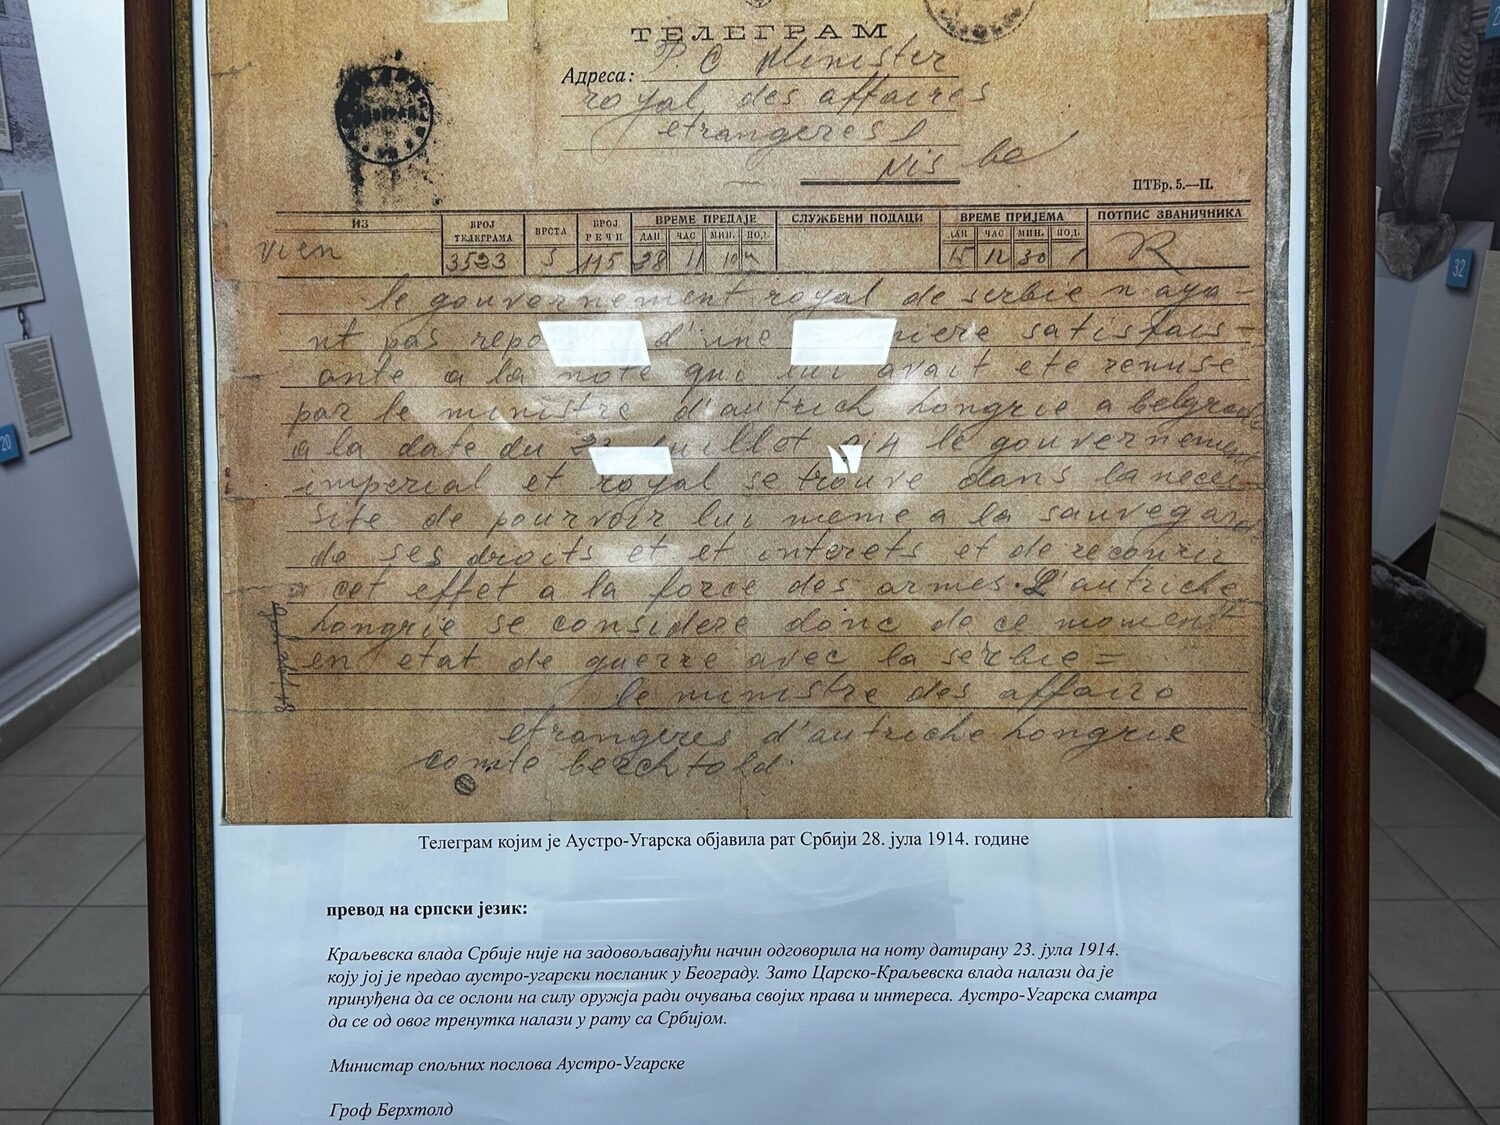 ТЕЛЕГРАМ
Адреса: P. C Minister
royal des affaires
etrangeres
Nis
ПТБр. 5.—II.
ИЗ БРОЈ ТЕЛЕГРАМА ВРСТА БРОЈ РЕЧИ ВРЕМЕ ПРЕДАЈЕ СЛУЖБЕНИ ПОДАЦИ ВРЕМЕ ПРИЈЕМА ПОТПИС ЗВАНИЧНИКА
ДАН ЧАС МИН. ПОД. ДАН ЧАС МИН. ПОД.
vien 3523 S 115 28 11 10 15 12 30
le gouvernement royal de serbie n aya-
nt pas d'une satisfais-
ante a la note qui lui avait ete remise
par le ministre d'autrich hongrie a belgrade
a la date du le gouvernement
imperial et royal se trouve dans la neces-
site de pourvoir lui meme a la sauvegar
de ses droits et et interets et de recourir
a cet effet a la force des armes. L'autriche
hongrie se considere donc de ce moment
en etat de guerre avec la serbie =
le ministre des affaire
etrangeres d'autriche hongrie
comte berchtold.
Телеграм којим је Аустро-Угарска објавила рат Србији 28. јула 1914. године
превод на српски језик:
Краљевска влада Србије није на задовољавајући начин одговорила на ноту датирану 23. јула 1914.
коју јој је предао аустро-угарски посланик у Београду. Зато Царско-Краљевска влада налази да је
принуђена да се ослони на силу оружја ради очувања својих права и интереса. Аустро-Угарска сматра
да се од овог тренутка налази у рату са Србијом.
Министар спољних послова Аустро-Угарске
Гроф Берхтолд
20
32